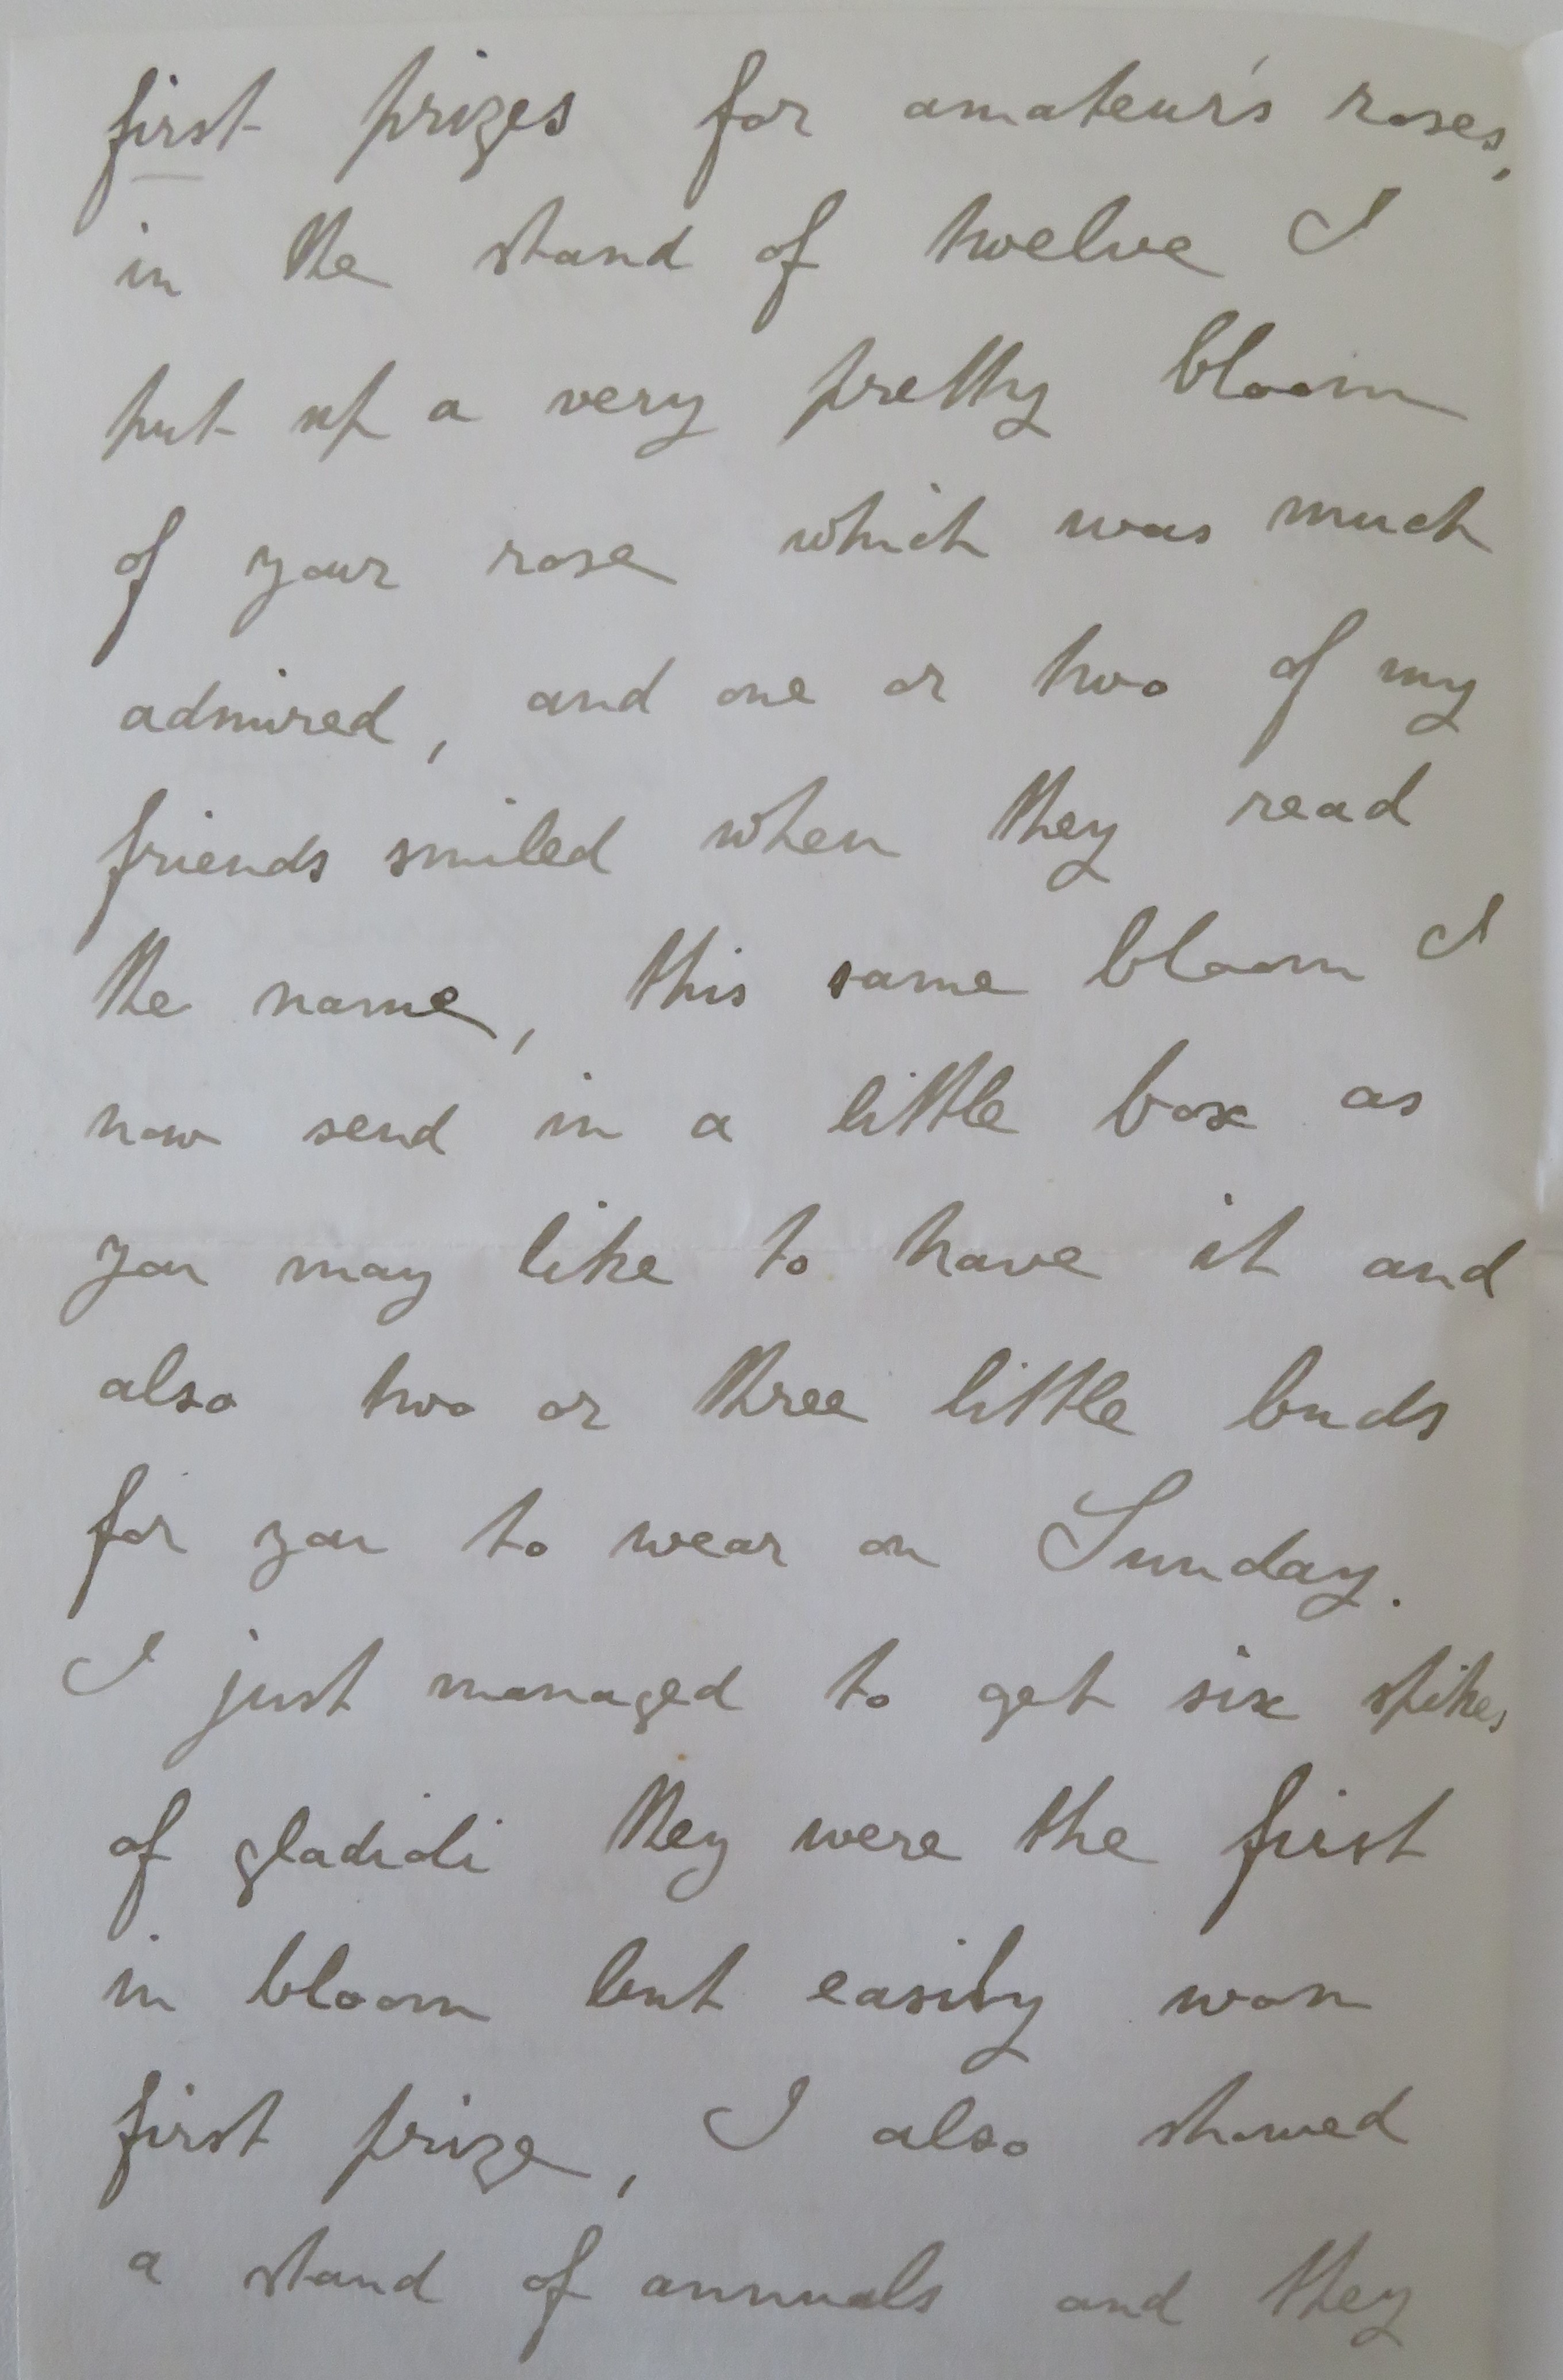 first prizes for amateur's roses,
in the stand of twelve I
put up a very pretty bloom
of your rose which was much
admired, and one or two of my
friends smiled when they read
the name, this same bloom I
now send in a little box as
you may like to have it and
also two or three little buds
for you to wear on Sunday.
I just managed to get six spikes
of gladioli they were the first
in bloom but easily won
first prize, I also showed
a stand of annuals and they